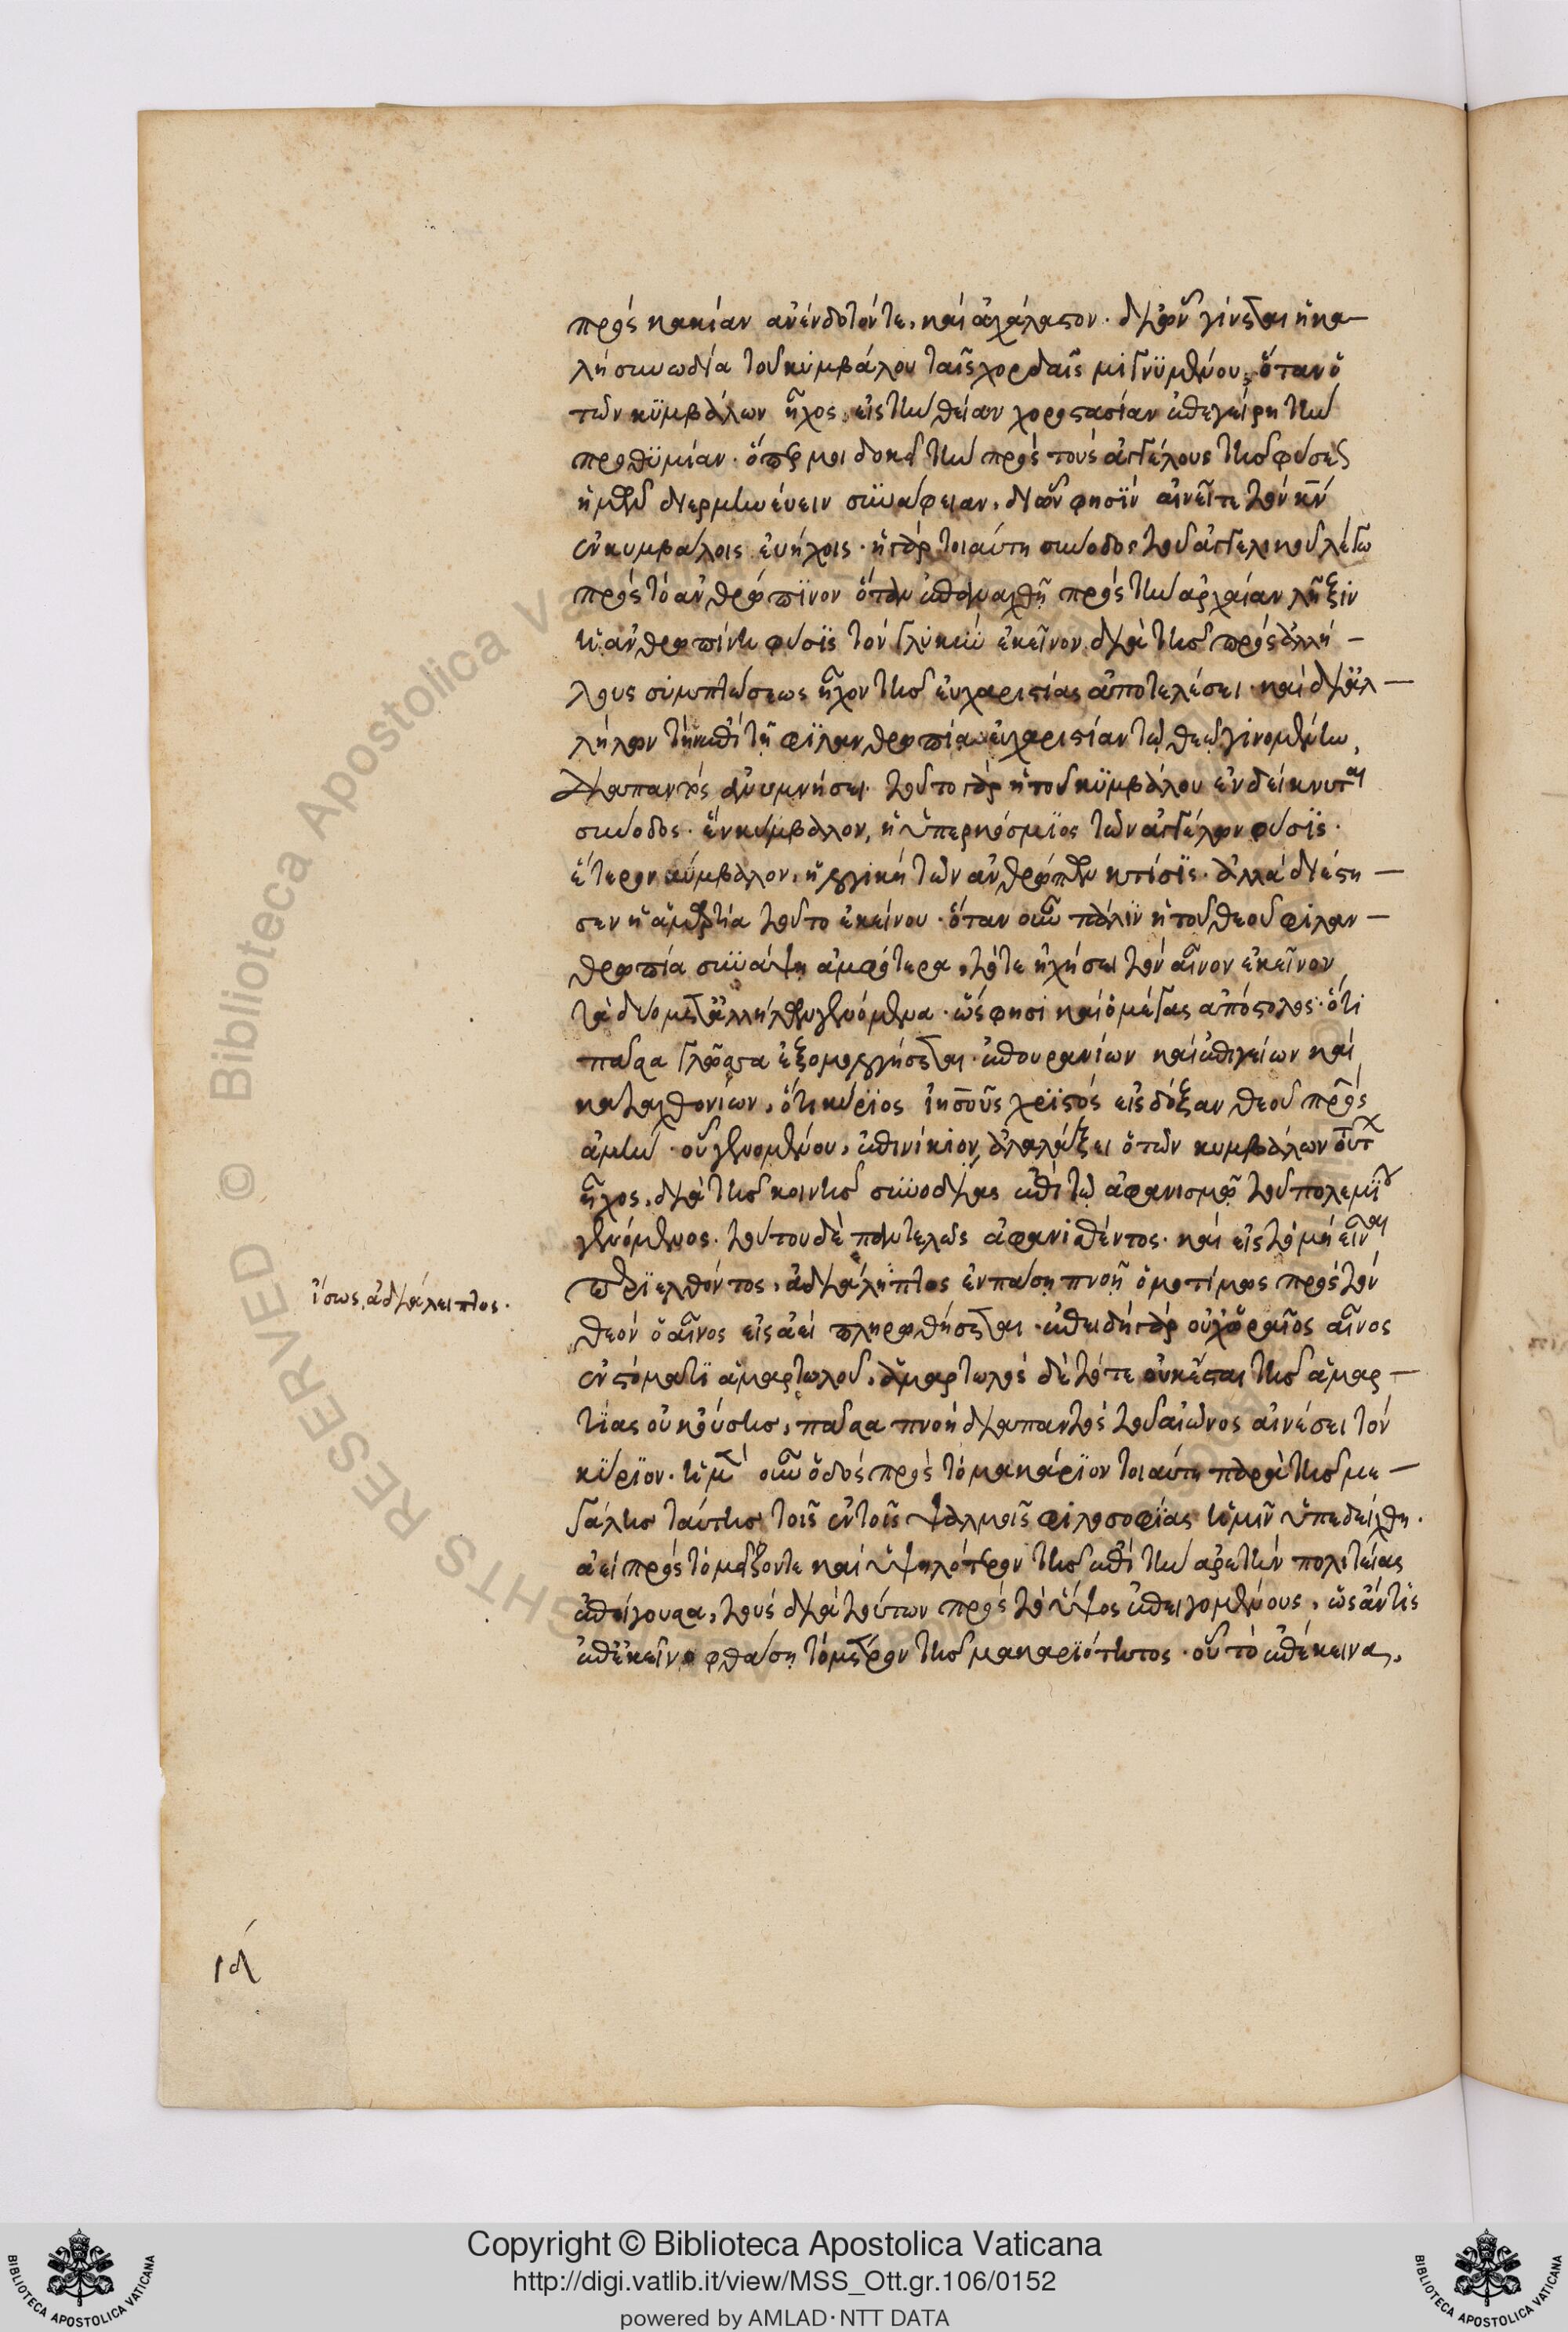 πρὸς κακίαν ἀνένδοτόν τε, καὶ ἀχάλαστον· δι' ὧν γίνεται ἡ κα—
λὴ συνωδία τοῦ κυμβάλου ταῖς χορδαῖς μιγνϋμένου, ὅταν ὁ
τῶν κϋμβάλων ἦχος, εἰς τὴν θείαν χοροστασίαν ἐπεγείρη τὴν
προθϋμίαν· ὅπερ μοι δοκεῖ τὴν πρὸς τοὺς ἀγγέλους τῆς φύσεως
ἡμῶν διερμηνεύειν συνάφειαν, δι' ὧν φησϊν αἰνεῖτε τὸν κν̅
ἐν κυμβάλοις εὐήχοις· ἡ γὰρ τοιαύτη σύνοδος τοῦ ἀγγελικοῦ λέγω
πρὸς τὸ ἀνθρώπϊνον ὅταν ἐπαναχθῆ πρὸς τὴν ἀρχαίαν λῆξιν
ἡ ἀνθρωπίνη φύσϊς τὸν γλυκὺν ἐκεῖνον διὰ τῆς πρὸς ἀλλή—
λους συμπτώσεως ἦχον τῆς εὐχαριστίας ἀποτελέσει· καὶ δι' ἀλ—
λήλων τὴν ἐπὶ τῆ φϊλανθρωπία εὐχαριστίαν τῶ θεῶ γινομένην,
διαπαντὸς ἀνυμνήσει· τοῦτο γὰρ ἡ τοῦ κϋμβάλου ἐνδείκνυται
σύνοδος· ἓν κύμβαλον, ἡ ὑπερκόσμϊος τῶν ἀγγέλων φύσϊς·
ἕτερον κύμβαλον, ἡ λογικὴ τῶν ἀνθρώπων κτίσϊς· ἀλλὰ διέστη—
σεν ἡ ἁμαρτία τοῦτο ἐκείνου· ὅταν οὖν πάλϊν ἡ τοῦ θεοῦ φιλαν—
θρωπία συνάψη ἀμφότερα, τότε ἠχήσει τὸν αἶνον ἐκεῖνον
τὰ δύο μετ' ἀλλήλων γενόμενα· ὥς φησι καὶ ὁ μέγας ἀπόστολος· ὅτι
πᾶσα γλῶσσα ἐξομολογήσεται· ἐπουρανίων καὶ ἐπιγείων καὶ
καταχθονίων, ὅτι κύρϊος ἰησοῦς χρϊστὸς εἰς δόξαν θεοῦ πρ̅ς
ἀμήν· οὗ γενομένου, ἐπινίκιον ἀλαλάξει ὁ τῶν κυμβάλων οὗτος
ἦχος, διὰ τῆς κοινῆς συνοδίας ἐπὶ τῶ ἀφανισμῶ τοῦ πολεμΐου
γενόμενος· τούτου δὲ παντελῶς ἀφανισθέντος· καὶ εἰς τὸ μὴ εἶναι
περϊελθόντος, ἀδιάληπτος ἐν πάση πνοῆ ὁμοτίμως πρὸς τὸν
θεὸν ὁ αἶνος εἰς ἀεὶ πληρωθήσεται· ἐπειδὴ γὰρ οὐχ ὡραῖος αἶνος
ἐν στόματϊ ἁμαρτωλοῦ, ἁμαρτωλὸς δὲ τότε οὐκ ἔσται τῆς ἁμαρ—
τϊας οὐκ οὔσης, πᾶσα πνοὴ διαπαντὸς τοῦ αἰῶνος αἰνέσει τὸν
κύρϊον· ἡ μὲν οὖν ὁδὸς πρὸς τὸ μακάρϊον τοιαύτη παρὰ τῆς με—
γάλης ταύτης τοῖς ἐν τοῖς ψαλμοῖς φιλοσοφϊας ἡμῖν ὑπεδείχθη·
ἀεὶ πρὸς τὸ μεῖζόν τε καὶ ὑψηλότερον τῆς ἐπὶ τὴν ἀρετὴν πολιτείας
ἐπείγουσα, τοὺς διὰ τούτων πρὸς τὸ ὕψος ἐπειγομένους, ὡς ἄν τϊς
ἐπ' ἐκεῖνο φθάση τὸ μέτρον τῆς μακαρϊότητος· οὗ τὸ ἐπέκεινα,
ἴσως, ἀδιάλειπτος.
ιδ